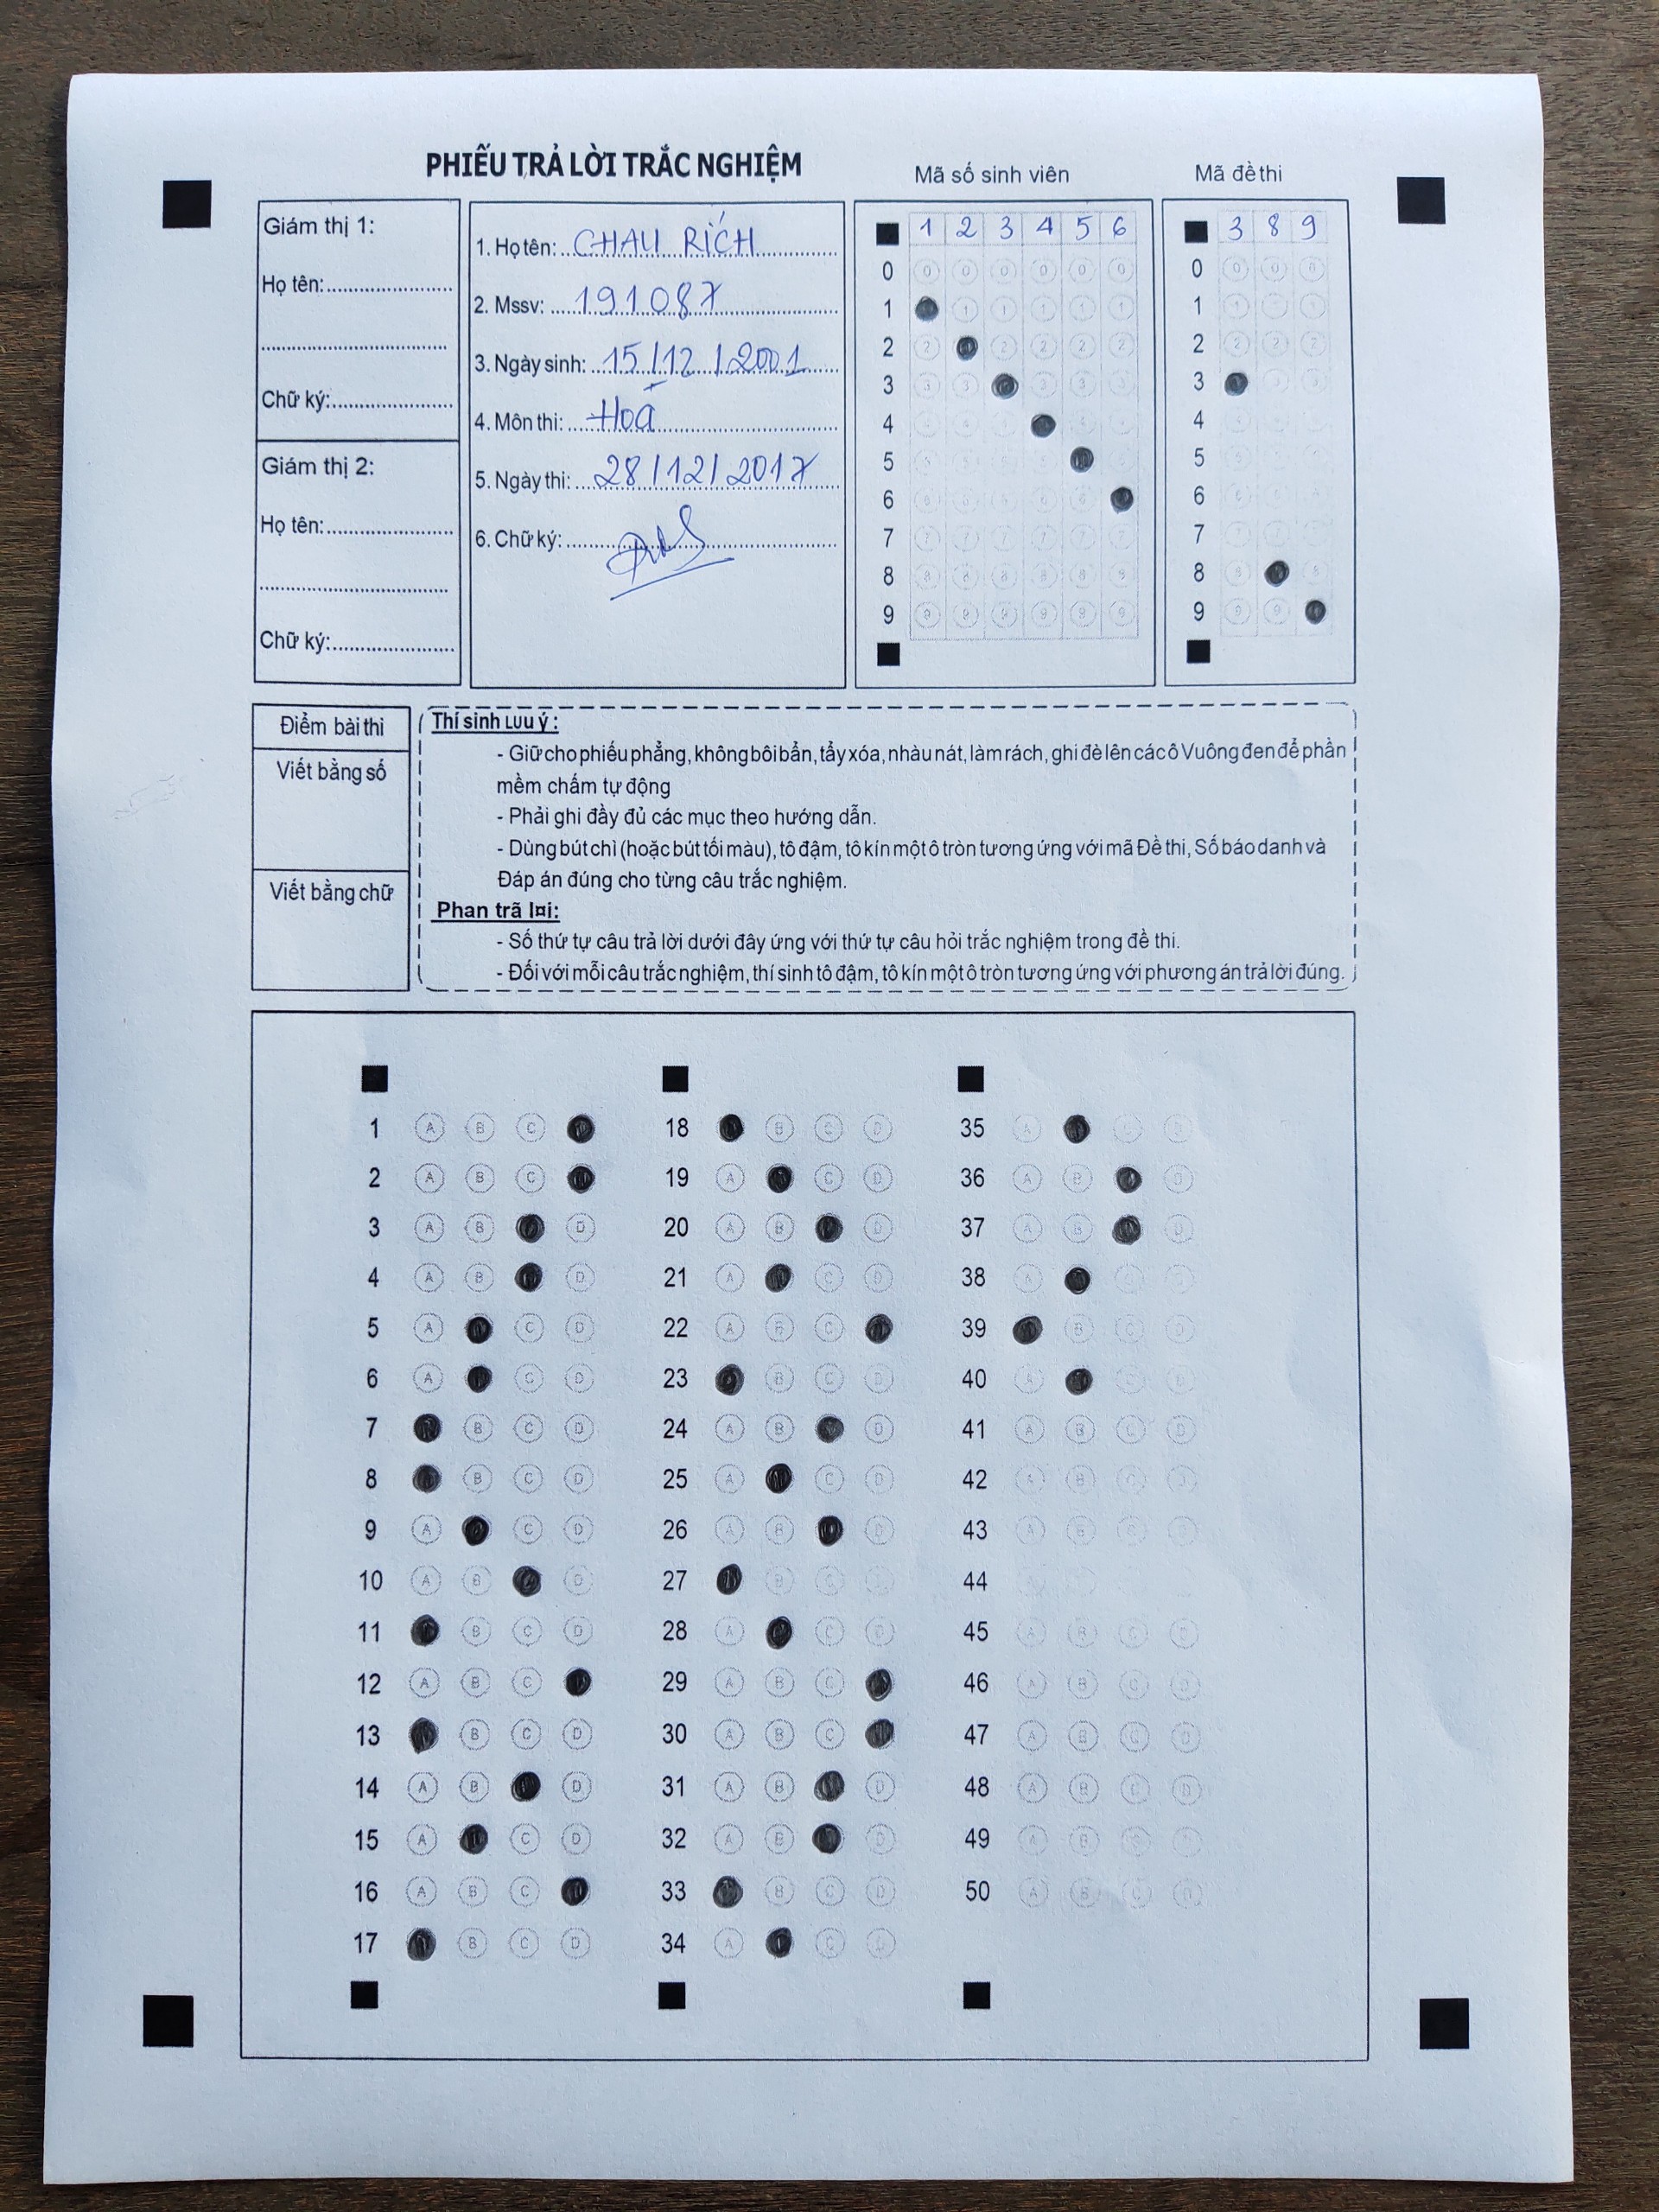 PHIẾU TRẢ LỜI TRẮC NGHIỆM
Mã số sinh viên
Mã đề thi
Giám thị 1:
Họ tên:
Chữ ký:
Giám thị 2:
Họ tên:
Chữ ký:
1. Họ tên: CHAU RÍCH
2. Mssv: 191087
3. Ngày sinh: 15/12/2001
4. Môn thi: Hoá
5. Ngày thi: 28/12/2017
6. Chữ ký:
1 2 3 4 5 6
0 0 0 0 0 0 0
1 1 1 1 1 1
2 2 2 2 2 2
3 3 3 3 3 3
4
5
6
7
8
9
3 8 9
0
1
2
3
4
5
6
7
8
9
Điểm bài thi
Viết bằng số
Viết bằng chữ
Thí sinh LƯu ý :
- Giữ cho phiếu phẳng, không bôi bẩn, tẩy xóa, nhàu nát, làm rách, ghi đè lên các ô Vuông đen để phần
mềm chấm tự động
- Phải ghi đầy đủ các mục theo hướng dẫn.
- Dùng bút chì (hoặc bút tối màu), tô đậm, tô kín một ô tròn tương ứng với mã Đề thi, Số báo danh và
Đáp án đúng cho từng câu trắc nghiệm.
Phan trã l¤i:
- Số thứ tự câu trả lời dưới đây ứng với thứ tự câu hỏi trắc nghiệm trong đề thi.
- Đối với mỗi câu trắc nghiệm, thí sinh tô đậm, tô kín một ô tròn tương ứng với phương án trả lời đúng.
1 A B C
2 A B C
3 A B D
4 A B D
5 A C D
6 A C D
7 B C D
8 B C D
9 A C D
10 A B D
11 B C D
12 A B C
13 B C D
14 A B D
15 A C D
16 A B C
17 B C D
18 B C D
19 A C D
20 A B D
21 A C D
22 A B C
23 B C D
24 A B D
25 A C D
26 A B D
27 B
28 A C D
29 A B C
30 A B C
31 A B D
32 A B D
33 B C D
34 A C D
35 A D
36 A B D
37 A B D
38 A
39 B C D
40 A C D
41 A B C D
42 A B C D
43 A B C
44
45 A B C D
46 A B C D
47 A B C D
48 A B C D
49 A B
50 A B C D